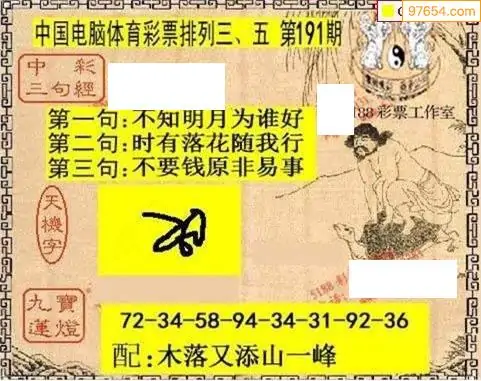 97654.com
中国电脑体育彩票排列三、五 第191期
中彩
三句經
188 彩票工作室
第一句:不知明月为谁好
第二句:时有落花随我行
第三句:不要钱原非易事
天機字
九寶
蓮燈
72-34-58-94-34-31-92-36
配:木落又添山一峰